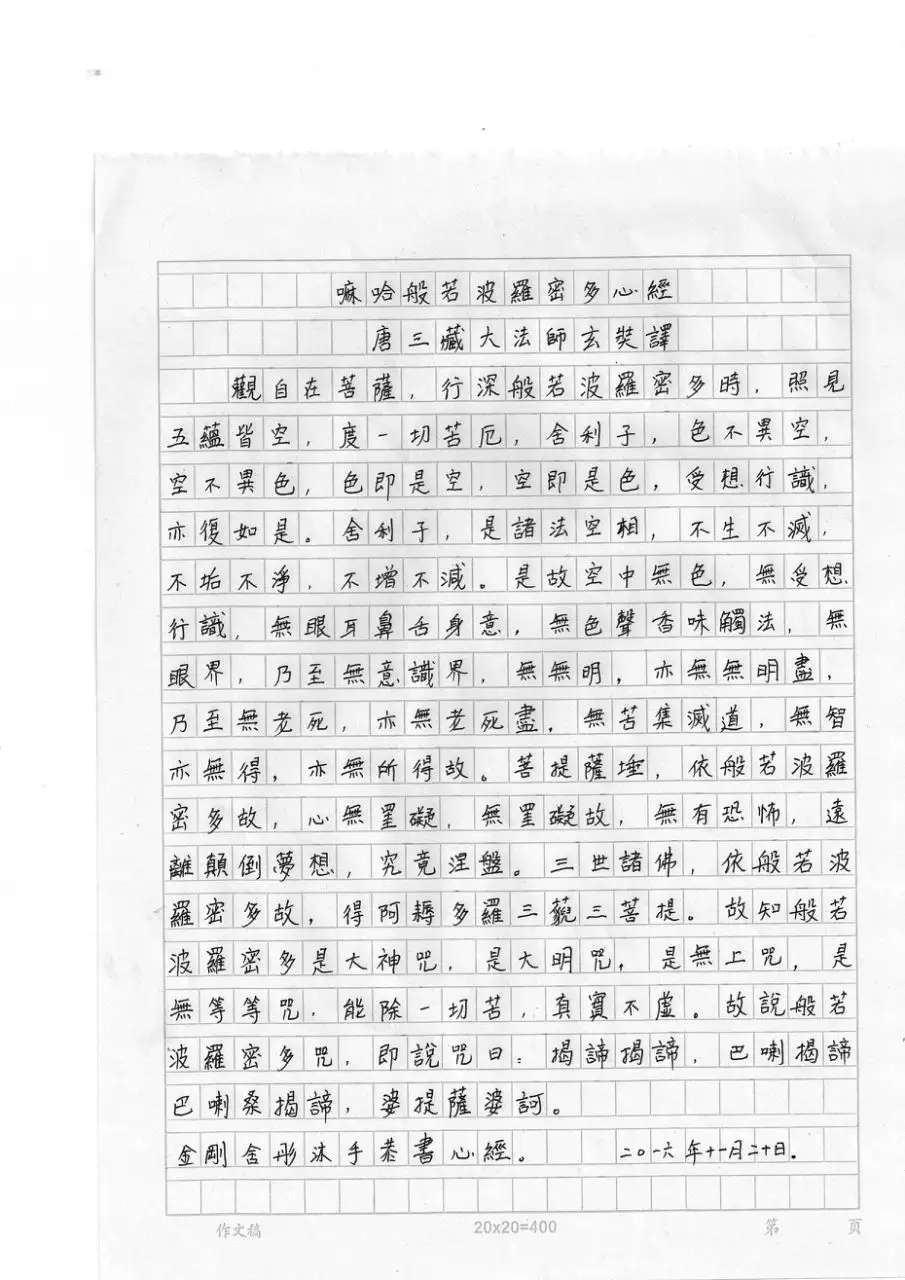 嘛哈般若波羅密多心經
唐三藏大法師玄奘譯
觀自在菩薩，行深般若波羅密多時，照見
五蘊皆空，度一切苦厄，舍利子，色不異空，
空不異色，色即是空，空即是色，受想行識，
亦復如是。舍利子，是諸法空相，不生不滅，
不垢不淨，不增不減。是故空中無色，無受想
行識，無眼耳鼻舌身意，無色聲香味觸法，無
眼界，乃至無意識界，無無明，亦無無明盡，
乃至無老死，亦無老死盡，無苦集滅道，無智
亦無得，亦無所得故。菩提薩埵，依般若波羅
密多故，心無罣礙，無罣礙故，無有恐怖，遠
離顛倒夢想，究竟涅盤。三世諸佛，依般若波
羅密多故，得阿耨多羅三藐三菩提。故知般若
波羅密多是大神咒，是大明咒，是無上咒，是
無等等咒，能除一切苦，真實不虛。故說般若
波羅密多咒，即說咒曰：揭諦揭諦，巴喇揭諦
巴喇桑揭諦，婆提薩婆訶。
金剛舍彤沐手恭書心經。 二〇一六年十一月二十日.
作文稿 20x20=400 第 頁